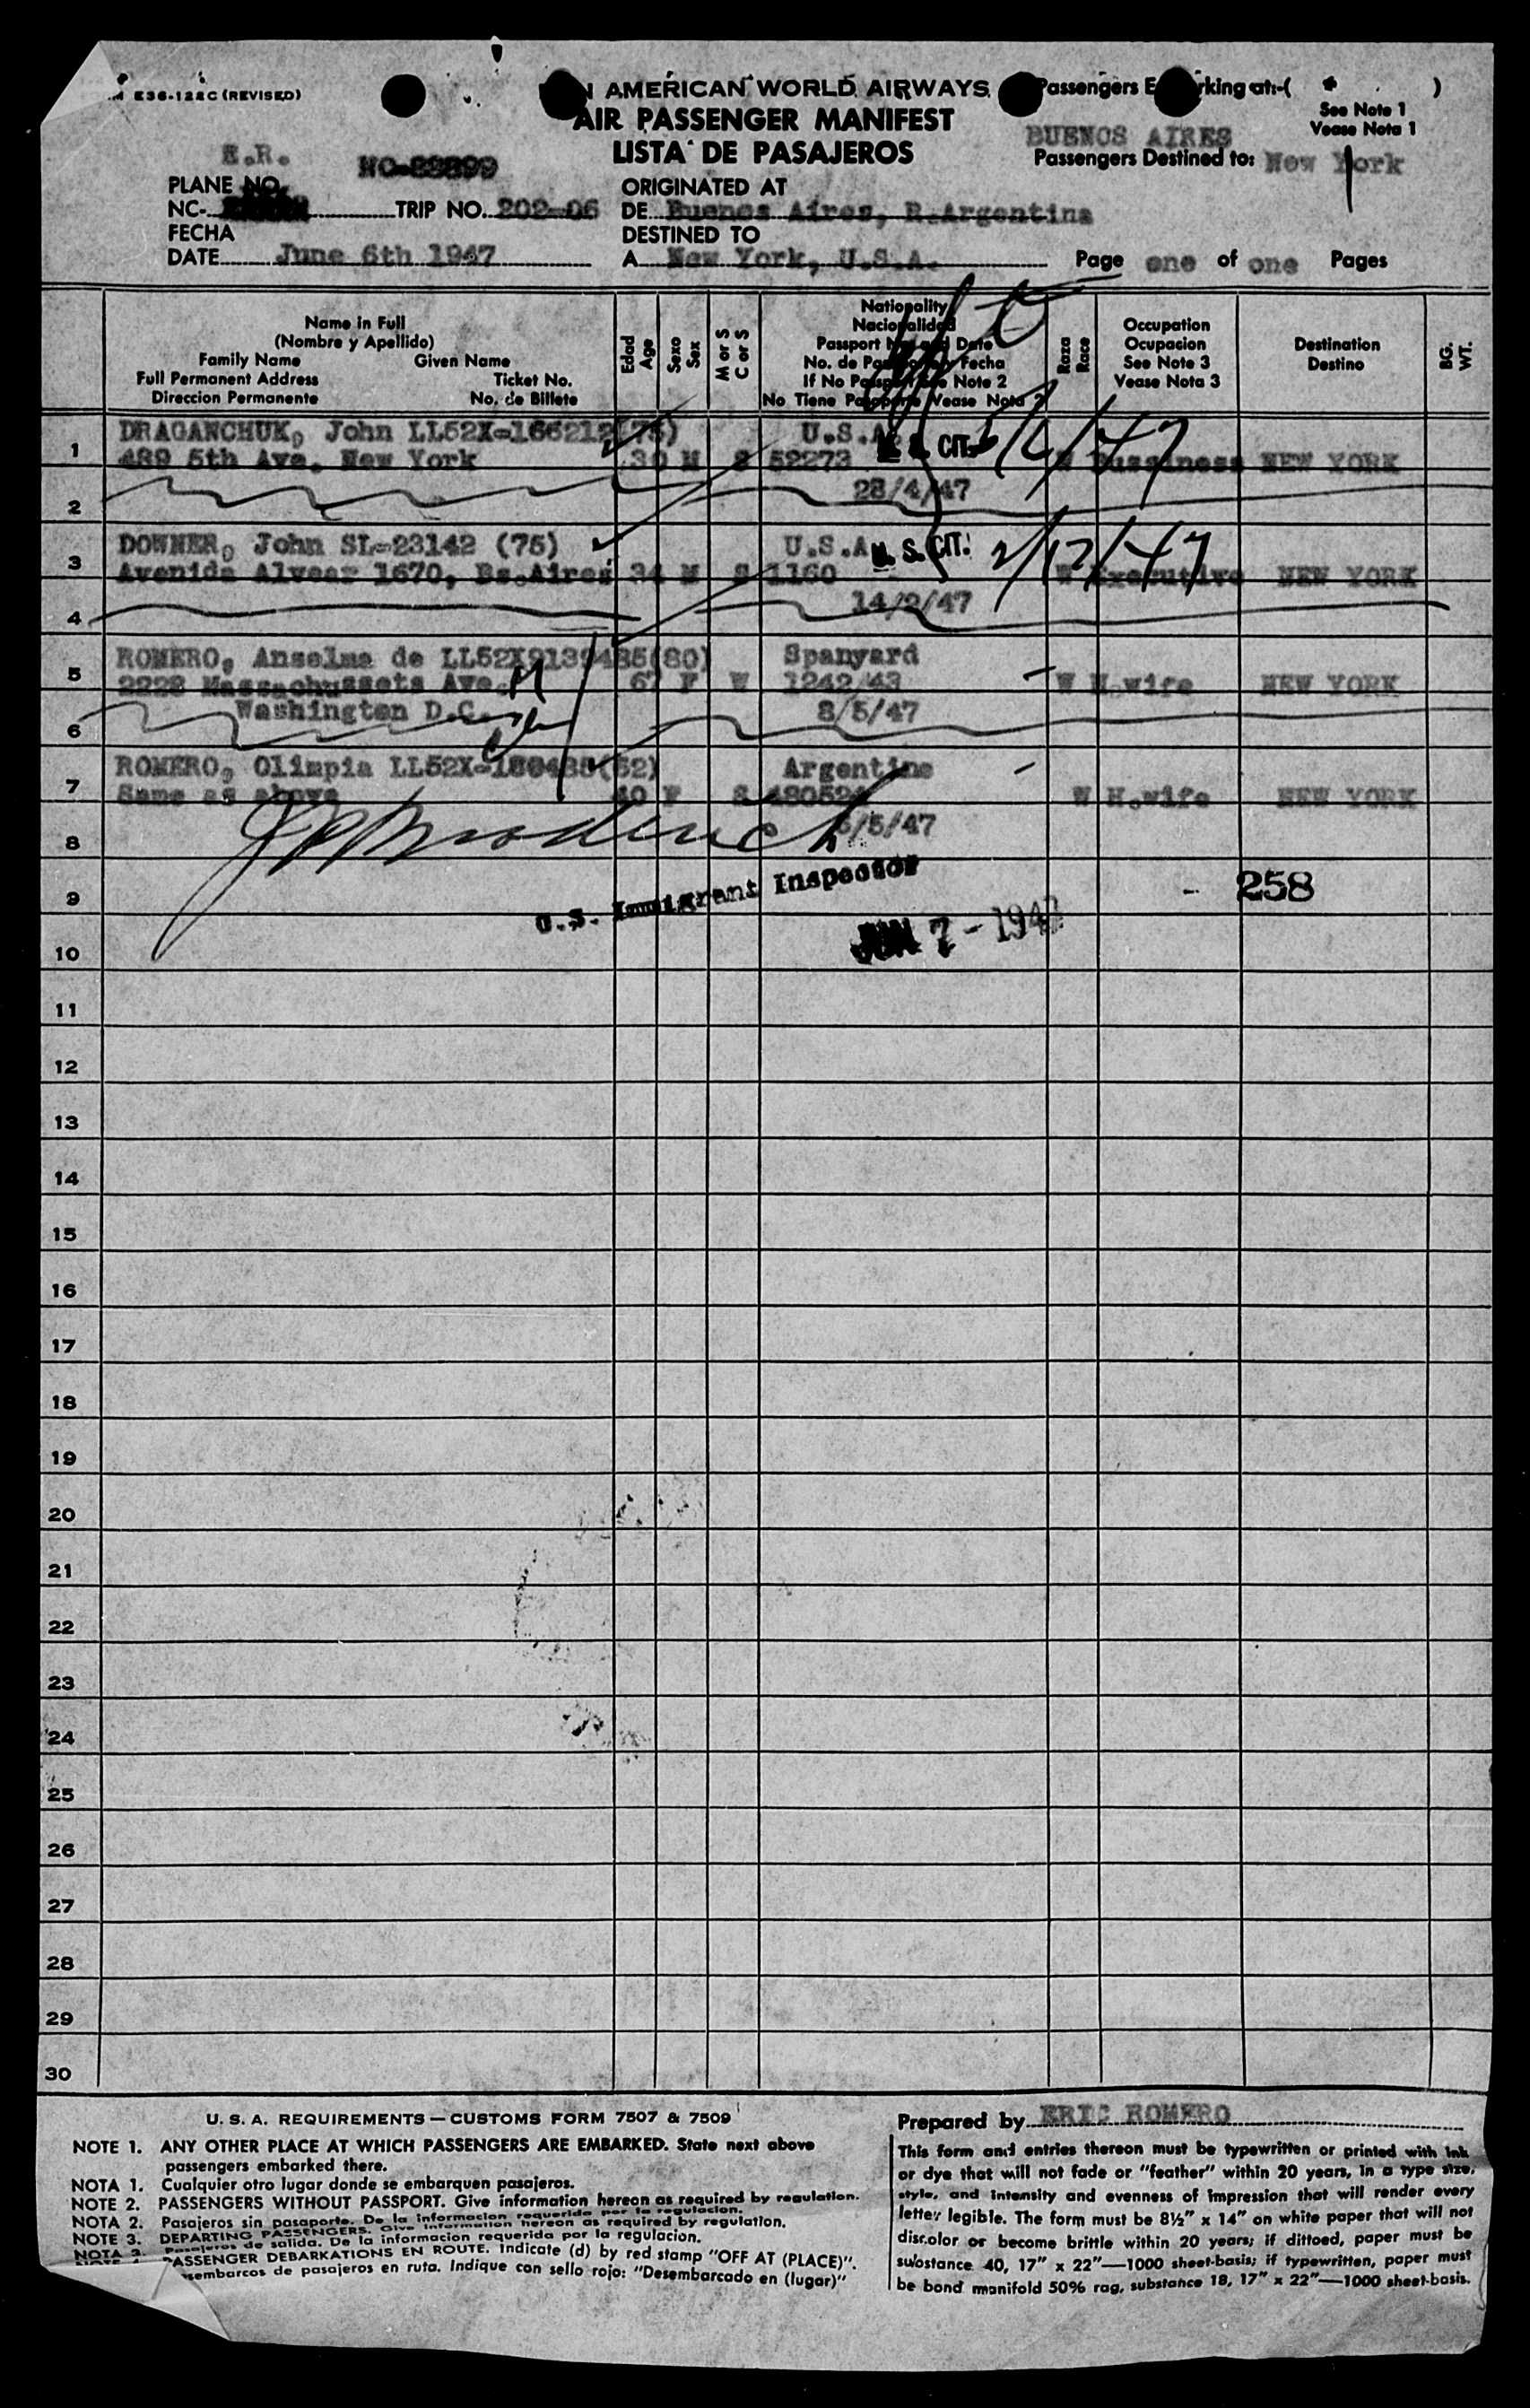 E36-122C (REVISED)
AMERICAN WORLD AIRWAYS
AIR PASSENGER MANIFEST
LISTA DE PASAJEROS
Passengers E rking at:-( )
See Note 1
Vease Nota 1
BUENOS AIRES
Passengers Destined to: New York
E.R.
PLANE NO.
NC- TRIP NO. 202-06
FECHA
DATE June 6th 1947
ORIGINATED AT
DE Buenos Aires, R.Argentina
DESTINED TO
A New York, U.S.A.
Page one of one Pages
Name in Full
(Nombre y Apellido)
Family Name Given Name
Full Permanent Address Ticket No.
Direccion Permanente No. de Billete
Edad
Age
Sexo
Sex
M or S
C or S
Nationality
Nacionalidad
Passport No. and Date
No. de Pasaporte y Fecha
If No Passport See Note 2
No Tiene Pasaporte Vease Nota 2
Raza
Race
Occupation
Ocupacion
See Note 3
Vease Nota 3
Destination
Destino
BG.
WT.
1 DRAGANCHUK, John LL52X-166212(75) U.S.A. U. S. CIT.
489 5th Ave. New York 30 M S 52273 W Bussiness NEW YORK
2 28/4/47
3 DOWNER, John SL-23142 (75) U.S.A. U. S. CIT. 2/17/47
Avenida Alvear 1670, Bs.Aires 34 M S 1160 W Executive NEW YORK
4 14/2/47
5 ROMERO, Anselma de Spanyard
2228 Massachussets Ave. 67 F W 1242/43 W H.wife NEW YORK
6 Washington D.C. 8/5/47
7 ROMERO, Olimpia Argentine
Same as above 40 F S W H.wife NEW YORK
8 /5/47
U.S. Immigrant Inspector
9 - 258
JUN 7 - 1947
10
11
12
13
14
15
16
17
18
19
20
21
22
23
24
25
26
27
28
29
30
U. S. A. REQUIREMENTS — CUSTOMS FORM 7507 & 7509
NOTE 1. ANY OTHER PLACE AT WHICH PASSENGERS ARE EMBARKED. State next above
passengers embarked there.
NOTA 1. Cualquier otro lugar donde se embarquen pasajeros.
NOTE 2. PASSENGERS WITHOUT PASSPORT. Give information hereon as required by regulation.
NOTA 2. Pasajeros sin pasaporte. De la informacion requerida por la regulacion.
NOTE 3. DEPARTING PASSENGERS. Give information hereon as required by regulation.
NOTA 3. Pasajeros de salida. De la informacion requerida por la regulacion.
PASSENGER DEBARKATIONS EN ROUTE. Indicate (d) by red stamp "OFF AT (PLACE)".
sembarcos de pasajeros en ruta. Indique con sello rojo: "Desembarcado en (lugar)"
Prepared by ERIC ROMERO
This form and entries thereon must be typewritten or printed with ink
or dye that will not fade or "feather" within 20 years, in a type size,
style, and intensity and evenness of impression that will render every
letter legible. The form must be 8½" x 14" on white paper that will not
discolor or become brittle within 20 years; if dittoed, paper must be
substance 40, 17" x 22"—1000 sheet-basis; if typewritten, paper must
be bond manifold 50% rag, substance 18, 17" x 22"—1000 sheet-basis.